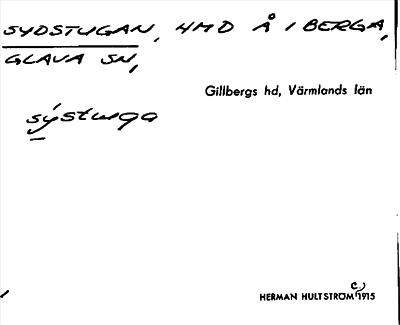 SYDSTUGAN, HMD Å I BERGA,
GLAVA SN,
Gillbergs hd, Värmlands län
sýstuga
HERMAN HULTSTRÖM c) 1915